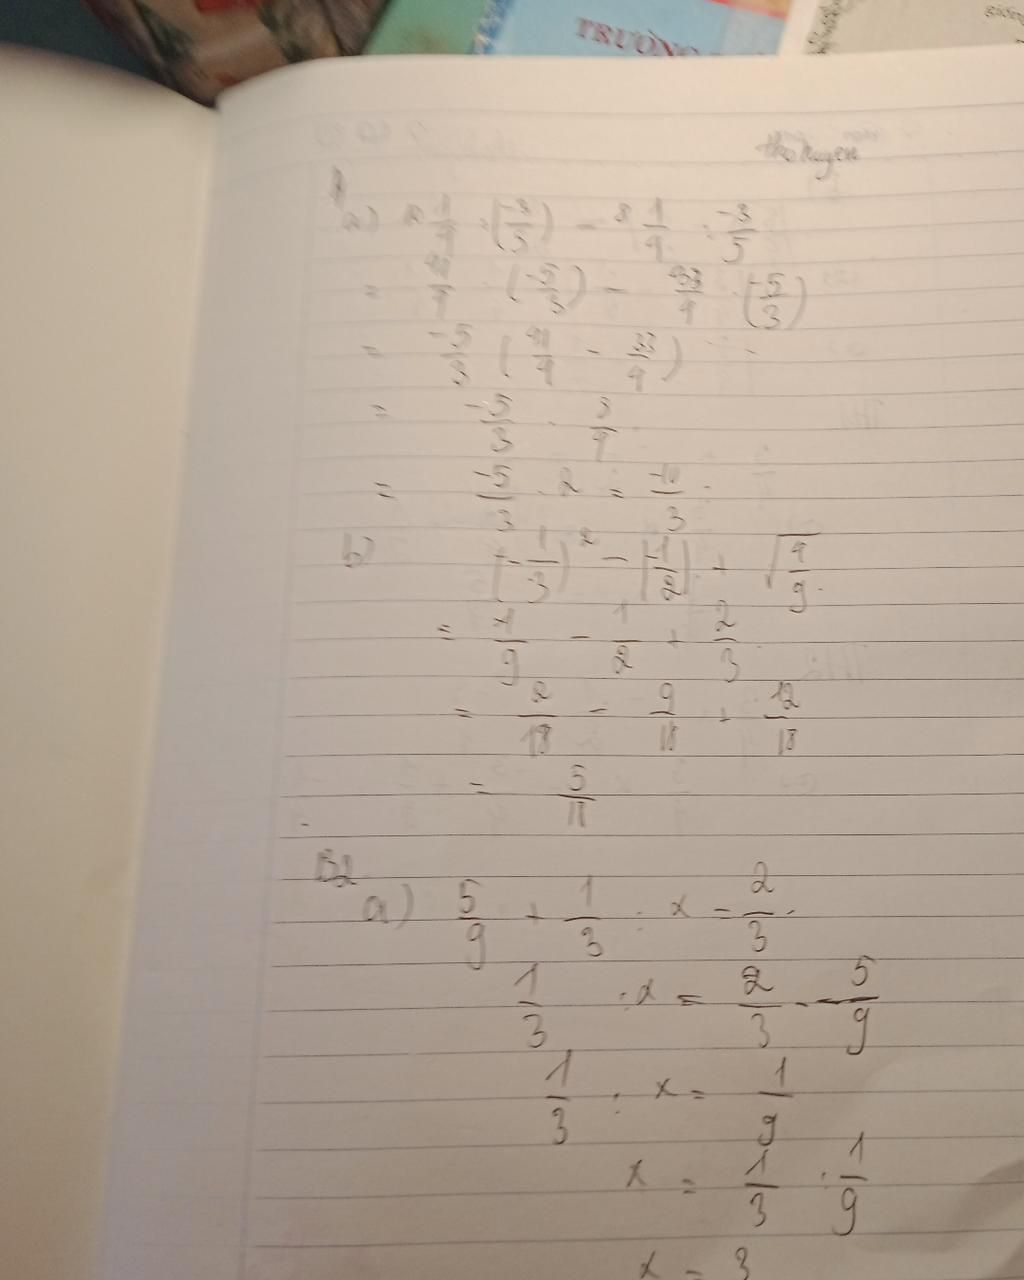 TRƯỜNG
giống
thảo nguyên
1
a) 10 1/4 : (-3/5) - 8 1/4 : -3/5
= 41/4 . (-5/3) - 33/4 . (-5/3)
= -5/3 (41/4 - 33/4)
= -5/3 . 8/4
= -5/3 . 2 = -10/3
b) (-1/3)² - |-1/2| + √4/9
= 1/9 - 1/2 + 2/3
= 2/18 - 9/18 + 12/18
= 5/18
B2
a) 5/9 + 1/3 : x = 2/3
1/3 : x = 2/3 - 5/9
1/3 : x = 1/9
x = 1/3 : 1/9
x = 3